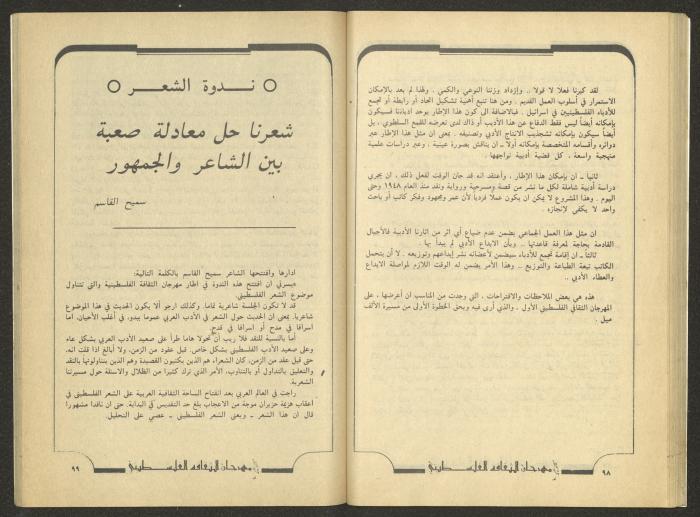 لقد كبرنا فعلا لا قولا .. وازداد وزننا النوعي والكمي . ولهذا لم يعد بالإمكان
الاستمرار في أسلوب العمل القديم . ومن هنا تنبع أهمية تشكيل اتحاد أو رابطة أو تجمع
للأدباء الفلسطينيين في اسرائيل . فبالاضافة الى كون هذا الإطار يوحد أدباءنا فسيكون
بإمكانه أيضاً ليس فقط الدفاع عن هذا الأديب أو ذاك لدى تعرضه للقمع السلطوي ، بل
أيضاً سيكون بإمكانه تشجيب الانتاج الأدبي وتصنيفه . بمعنى ان مثل هذا الإطار عبر
دوائره وأقسامه المتخصصة بإمكانه أولا ـ ان يناقش بصورة عينية ، وعبر دراسات علمية
منهجية واسعة ، كل قضية أدبية نواجهها .
ثانياً ـ ان بإمكان هذا الإطار ، وأعتقد انه قد حان الوقت لفعل ذلك ، ان يجري
دراسة أدبية شاملة لكل ما نشر من قصة ومسرحية ورواية ونقد منذ العام ١٩٤٨ وحتى
اليوم . وهذا المشروع لا يمكن ان يكون عملا فردياً لأن عمر ومجهود وفكر كاتب أو باحث
واحد لا يكفي لإنجازه .
ان مثل هذا العمل الجماعي يضمن عدم ضياع أي اثر من اثارنا الأدبية فالأجيال
القادمة بحاجة لمعرفة قاعدتها .. وبأن الابداع الأدبي لم يبدأ بها .
ثالثا ـ ان إقامة تجمع للأدباء سيضمن لأعضائه نشر إبداعهم وتوزيعه . لا أن يتحمل
الكاتب تبعة الطباعة والتوزيع .. وهذا الأمر يضمن له الوقت اللازم لمواصلة الابداع
والعطاء الأدبي ..
هذه هي بعض الملاحظات والاقتراحات ، التي وجدت من المناسب ان أعرضها ، على
المهرجان الثقافي الفلسطيني الأول .. والذي أرى فيه وبحق الخطوة الأولى من مسيرة الألف
ميل .
مهرجان الثقافة الفلسطيني
٩٨
ندوة الشعر
شعرنا حل معادلة صعبة
بين الشاعر والجمهور
سميح القاسم
ادارها وافتتحها الشاعر سميح القاسم بالكلمة التالية:
«يسرني ان افتتح هذه الندوة في اطار مهرجان الثقافة الفلسطينية والتي تتناول
موضوع الشعر الفلسطيني
قد لا تكون الجلسة شاعرية تماما. وكذلك ارجو ألا يكون الحديث في هذا الموضوع
شاعريا. بمعنى ان الحديث حول الشعر في الأدب العربي عموما يبدو، في أغلب الأحيان، اما
اسرافا في مدح أو اسرافا في قدح.
أما بالنسبة للنقد فلا ريب ان تحولا هاما طرأ على صعيد الأدب العربي بشكل عام
وعلى صعيد الأدب الفلسطيني بشكل خاص. قبل عقود من الزمن، ولا أبالغ اذا قلت انه،
حتى قبل عقد من الزمن، كان الشعراء هم الذين يكتبون القصيدة وهم الذين يتناولونها بالنقد
والتعليق بالتداول أو بالتناوب، الأمر الذي ترك كثيرا من الظلال والاسئلة حول مسيرتنا
الشعرية.
راجت في العالم العربي بعد انفتاح الساحة الثقافية العربية على الشعر الفلسطيني في
أعقاب هزيمة حزيران موجة من الاعجاب بلغ حد التقديس في البداية. حتى ان ناقدا مشهورا
قال ان هذا الشعر ـ ويعني الشعر الفلسطيني ـ عصي على التحليل.
مهرجان الثقافة الفلسطيني
٩٩